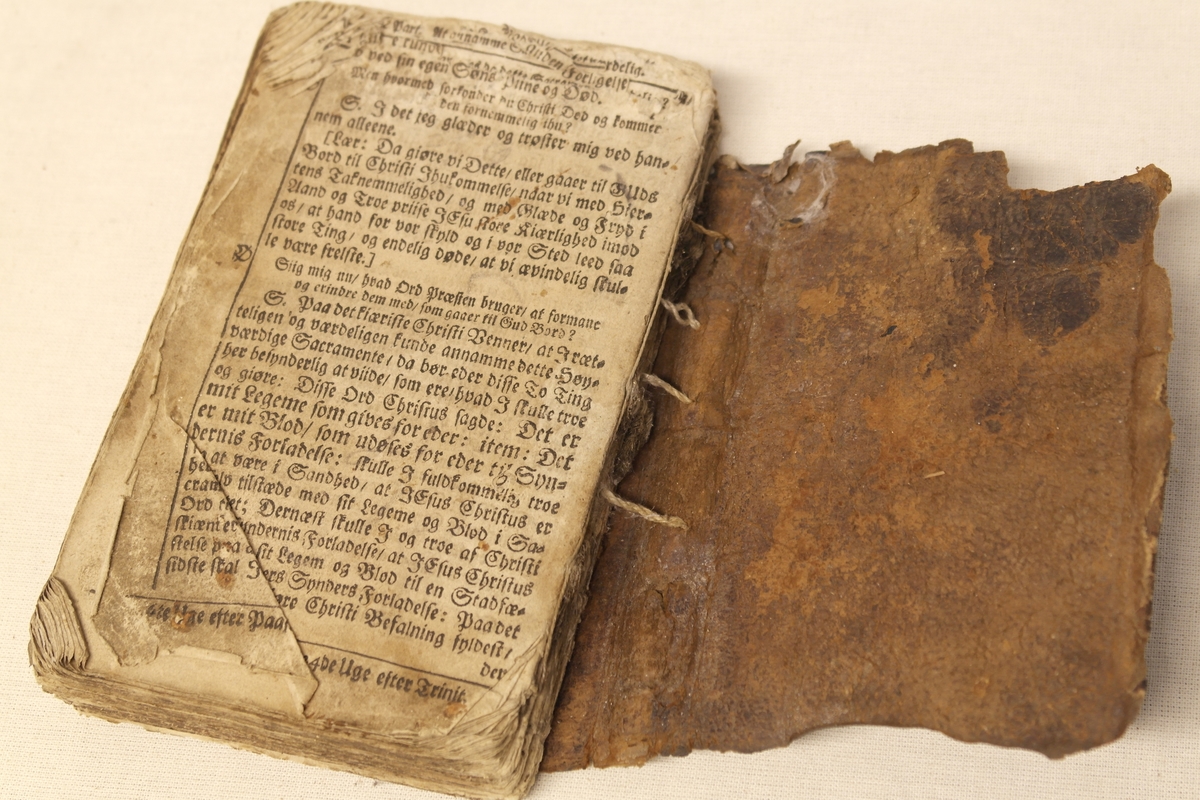 Part. At annamme
ved sin egen Søns Pine og Død.
Men hvormed forkynder du Christi Død og kommer
den fornemmelig ihu?
S. I det jeg glæder og trøster mig ved han-
nem alleene.
[Lær: Da giøre vi Dette/ eller gaaer til GUds
Bord til Christi Ihukommelse/ naar vi med Hier-
tens Taknemmelighed/ og med Glæde og Fryd i
Aand og Troe priise JEsu store Kiærlighed imod
os/ at hand for vor skyld og i vor Sted leed saa
store Ting/ og endelig døde/ at vi ævindelig skul-
le være frelste.]
Siig mig nu/ hvad Ord Præsten bruger/ at formane
og erindre dem med/ som gaaer til Gud Bord?
S. Paa det kiæriste Christi Venner/ at I ræt-
teligen og værdeligen kunde annamme dette Høy-
værdige Sacramente/ da bør eder disse To Ting
her besynderlig at viide/ som ere/ hvad I skulle troe
og giøre: Disse Ord Christus sagde: Det er
mit Legeme som gives for eder: item: Det
er mit Blod/ som udøses for eder til Syn-
dernis Forladelse: skulle I fuldkommelig troe
at være i Sandhed/ at JEsus Christus er
tilstæde med sit Legeme og Blod i Sa-
Ord Dernæst skulle I og troe af Christi
Forladelse/ at JEsus Christus
sit Legem og Blod til en Stadfæ-
stelse Synders Forladelse: Paa det
sidste skal Christi Befalning fyldest/
der
Uge efter Paa
Uge efter Trinit.